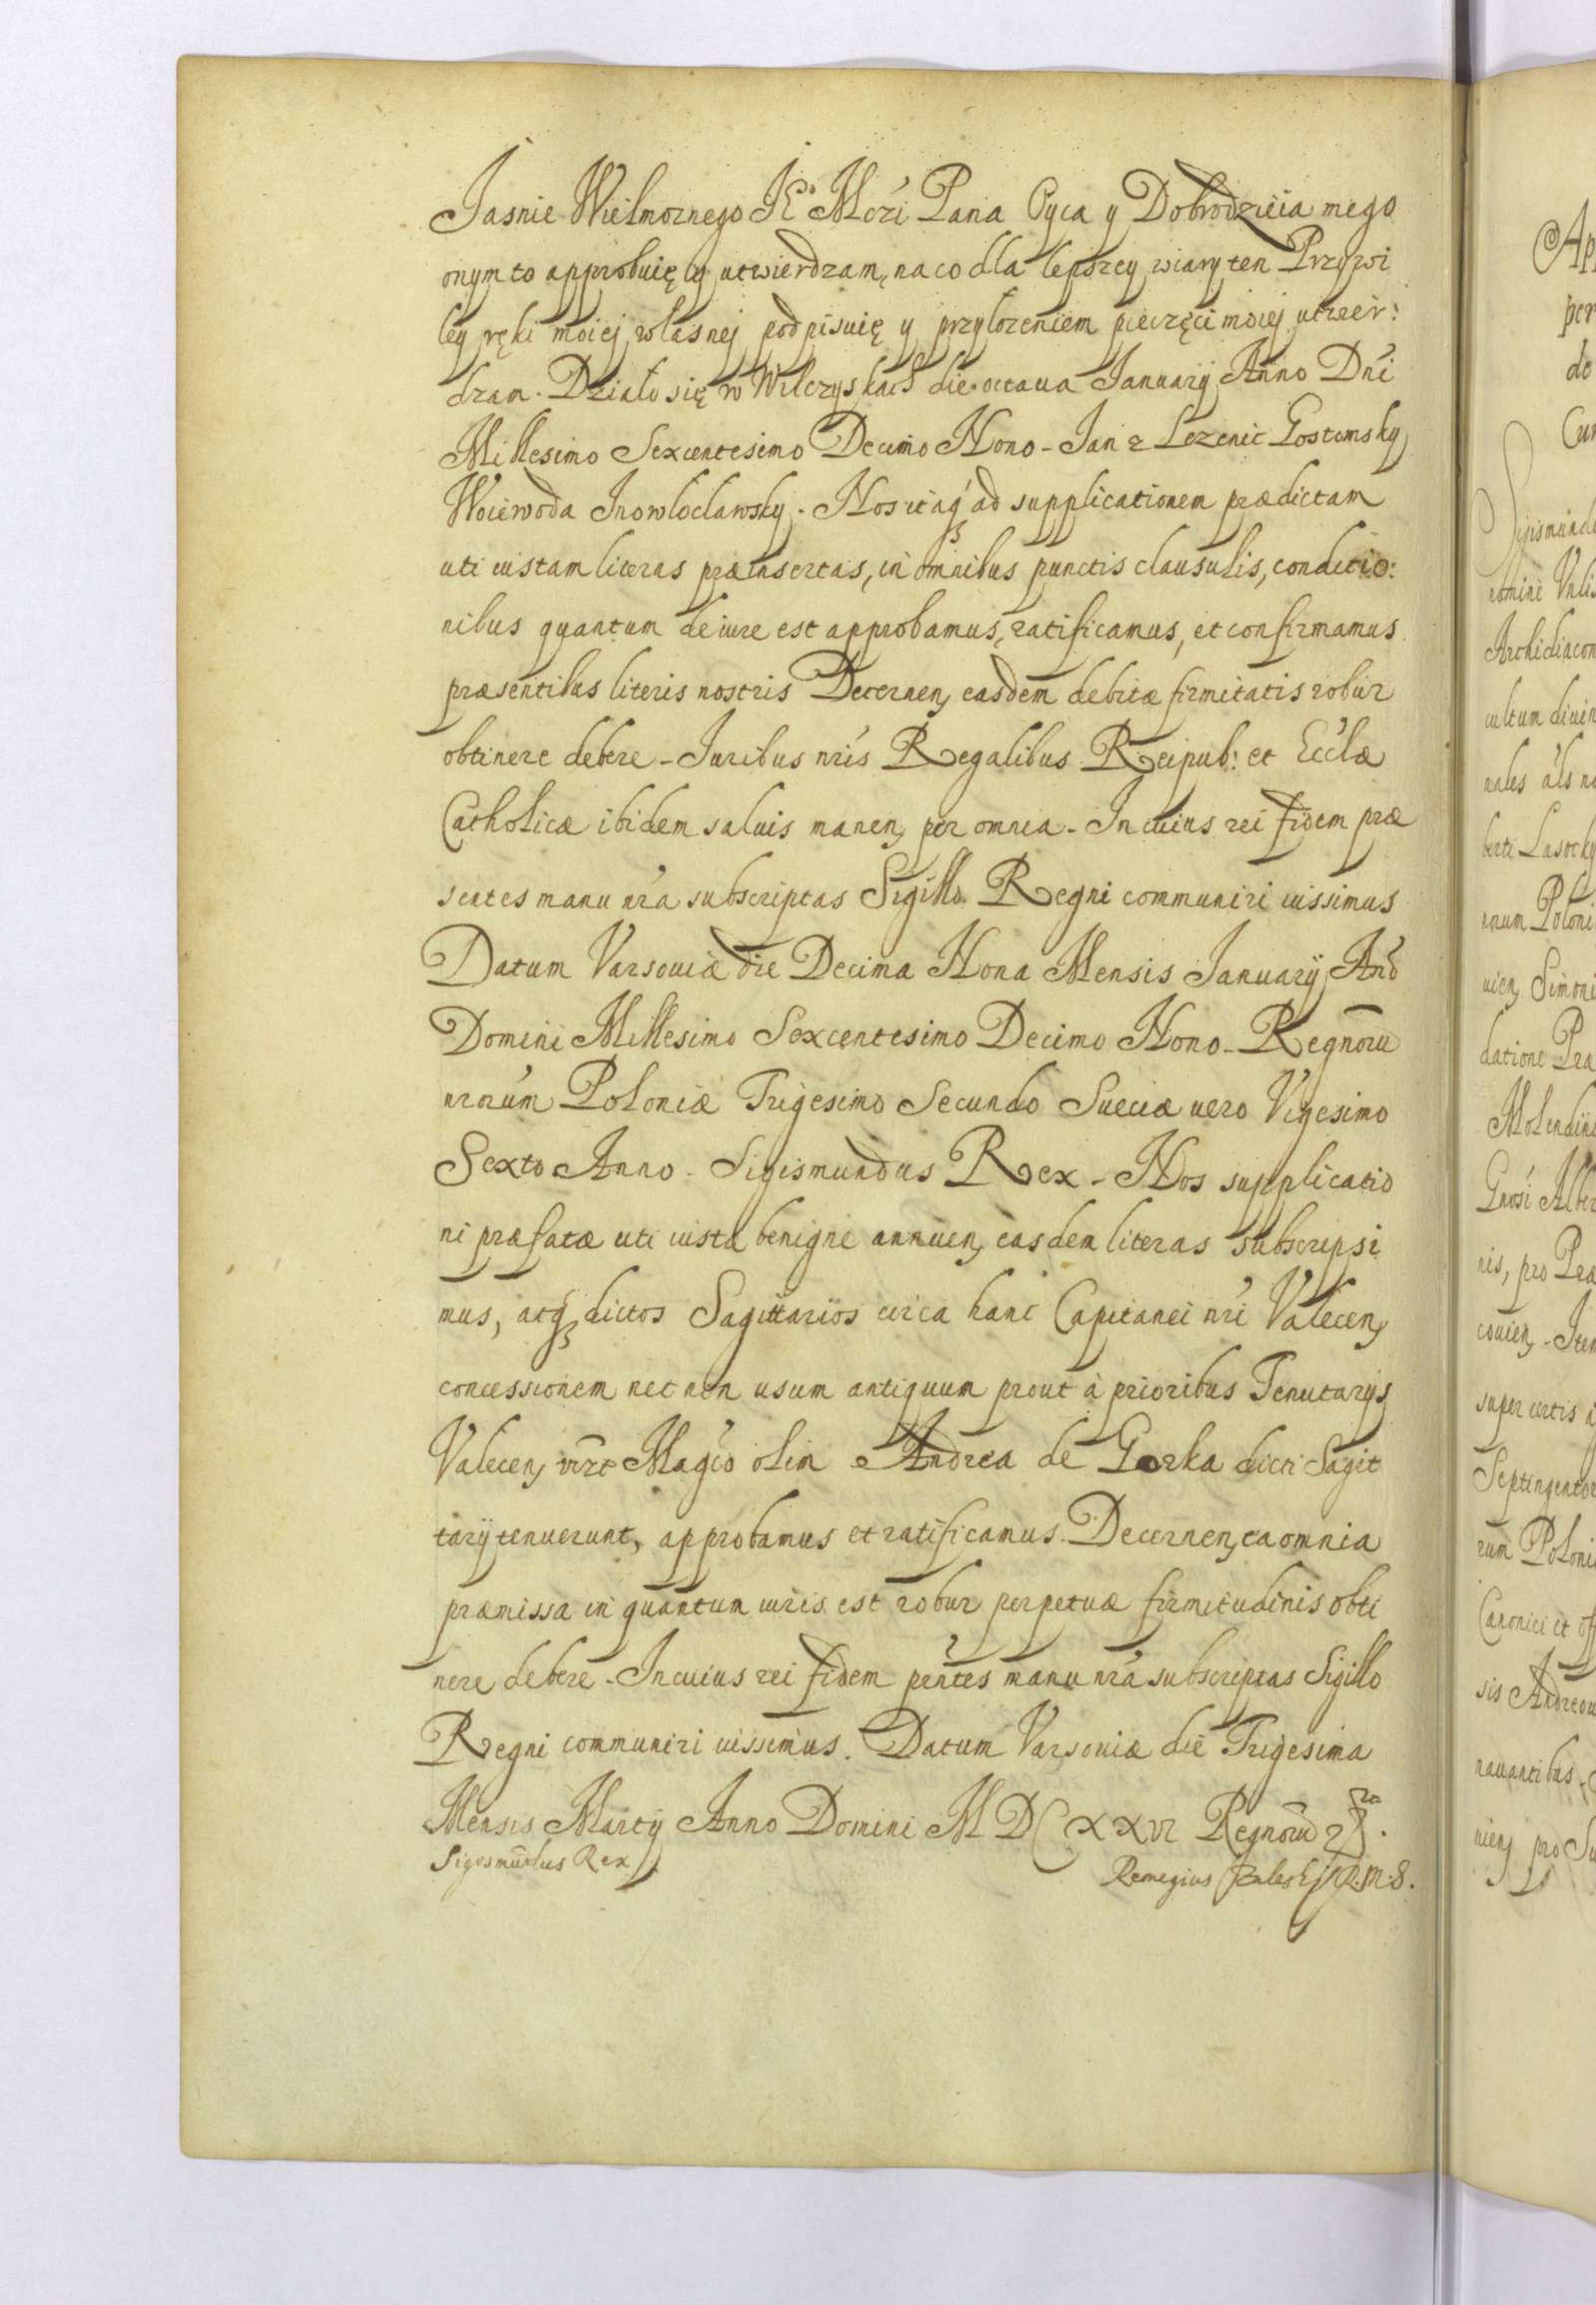 Jasnie Wielmoznego JE° Mozi Pana Oyca y Dobrodzieia mego
onym to approbuię y utwierdzam, na co dla lepszey wiary ten Przywi
ley ręki moiej własnej podpisuię y przylozeniem pieczęci moiej utwier:
dzam. Działo się w Wilczyskach die octaua January Anno Dni
Millesimo Sexcentesimo Decimo Nono - Jan z Lezenic Gostomsky
Woiewoda Inowloclawsky. Nos itaq ad supplicationem prædictam
uti iustam literas præinsertas, in omnibus punctis clausulis, conditio:
nibus quantum de iure est approbamus, ratificamus, et confirmamus
præsentibus literis nostris Decernen, easdem debitæ firmitatis robur
obtinere debere - Juribus nris Regalibus Reipub: et Ecclæ
Catholicæ ibidem saluis manen, per omnia - In cuius rei fidem præ
sentes manu nra subscriptas Sigillo Regni communiri iussimus
Datum Varsouiæ die Decima Nona Mensis Januarij Ano
Domini Millesimo Sexcentesimo Decimo Nono - Regnoru
nrorum Poloniæ Trigesimo Secundo Sueciæ uero Vigesimo
Sexto Anno - Sigismundus Rex - Nos supplicatio
ni præfatæ uti iustæ benigne annuen, easdem literas subscripsi
mus, atq dictos Sagittarios circa hanc Capitanei nri Valecen,
concessionem nec non usum antiquum prout à prioribus Tenutarijs
Valecen, Magco olim Andrea de Gorka dicti Sagit
tarij tenuerunt, approbamus et ratificamus. Decernen, ea omnia
præmissa in quantum iuris est robur perpetuæ firmitudinis obti
nere debere - In cuius rei fidem pntes manu nra subscriptas Sigillo
Regni communiri iussimus. Datum Varsouiæ die Trigesima
Mensis Martij Anno Domini MDCXXVI Regnoru
Sigismudus Rex
Remigius Zaleskj R.M.S.
Ap
per
de
Cum
Sigismundu
Archidiacon
cultum diuin
nales als no
berti Lasocky
datione Præ
Gnosi Alber
nis, pro Præ
super certis
Septingentor
rum Poloni
Canonici et off
nauantibus